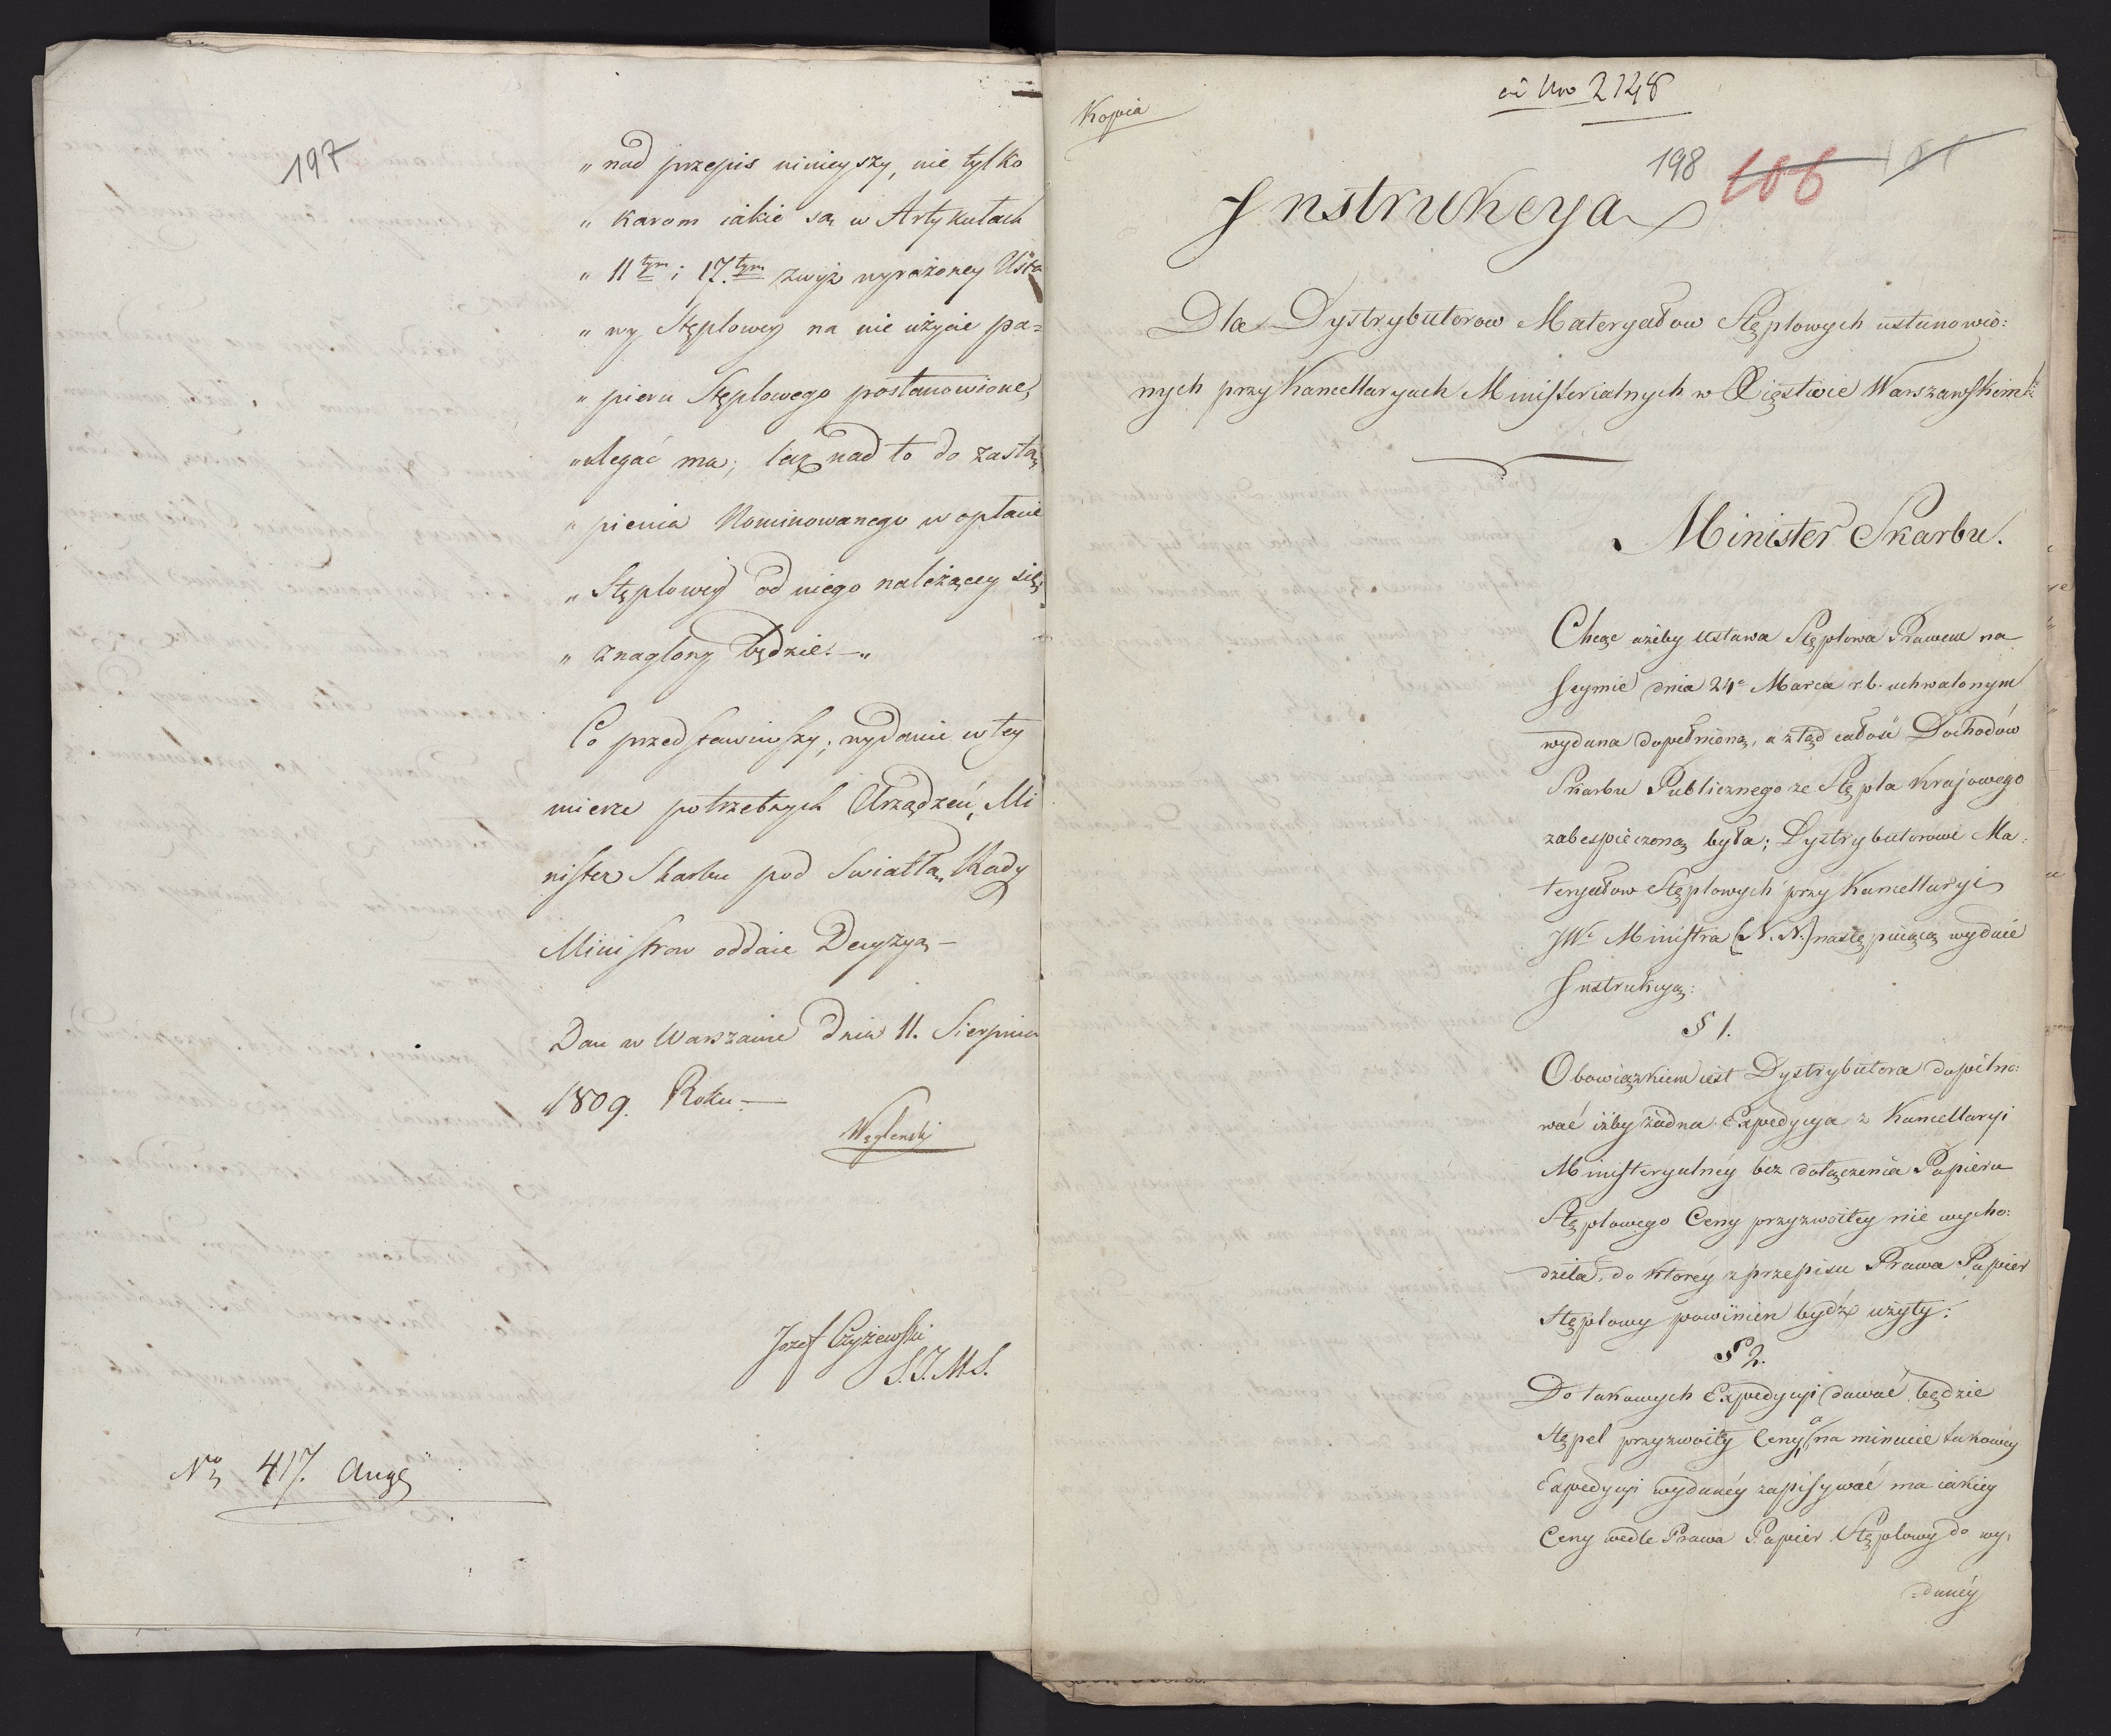 197
„ nad przepis ninieyszy, nie tylko
„ karom iakie są w Artykułach
„ 11tym i 17.tym zwyż wyrażoney Usta
„ wy Stęplowey na nie użycie pa=
„ pieru Stęplowego postanowione,
„ ulegać ma; lecz nad to do zastą
„ pienia Nominowanego w opłacie
„ Stęplowey od niego należącey się,
„ znaglony będzie. — „
Co przedstawiwszy, wydanie w tey
mierze potrzebnych Urządzeń, Mi
nister Skarbu pod Swiatłą Rady
Ministrow oddaie Decyzyą —
Dan w Warszawie Dnia 11. Sierpnia
1809. Roku —
Węglenski
Jozef Czyżewski
S. J. M. S.
Nro 417. Aug
Kopia
ad Nro 2148
198 106
Instrukcya
Dla Dystrybutorow Materyałow Stęplowych ustanowio:
nych przy Kancellaryach Ministerialnych w Xięstwie Warszawskim
Minister Skarbu.
Chcąc ażeby Ustawa Stęplowa Prawem na
Seymie dnia 24o Marca r. b. uchwalonym
wydana dopełnioną, a ztąd całość Dochodów
Skarbu Publicznego ze Stępla Krajowego
zabespieczoną była; Dystrybutorowi Ma:
teryałow Stęplowych przy Kancellaryi
JWo Ministra (N. N.) następuiącą wydaie
Instrukcyą:
§ 1.
Obowiązkiem iest Dystrybutora dopilno:
wać iżby żadna Expedycya z Kancellaryi
Ministeryalnéy bez dołączenia Papieru
Stęplowego Ceny przyzwoitey nie wycho:
dziła, do ktoréy z przepisu Prawa Papier
Stęplowy powinien bydź użyty:
§ 2.
Do takowych Expedycyi dawać będzie
Stępel przyzwoity Ceny, a na minucie takowey
Expedycyi wydanéy zapisywać ma iakiey
Ceny wedle Prawa Papier Stęplowy do wy,
=danéy